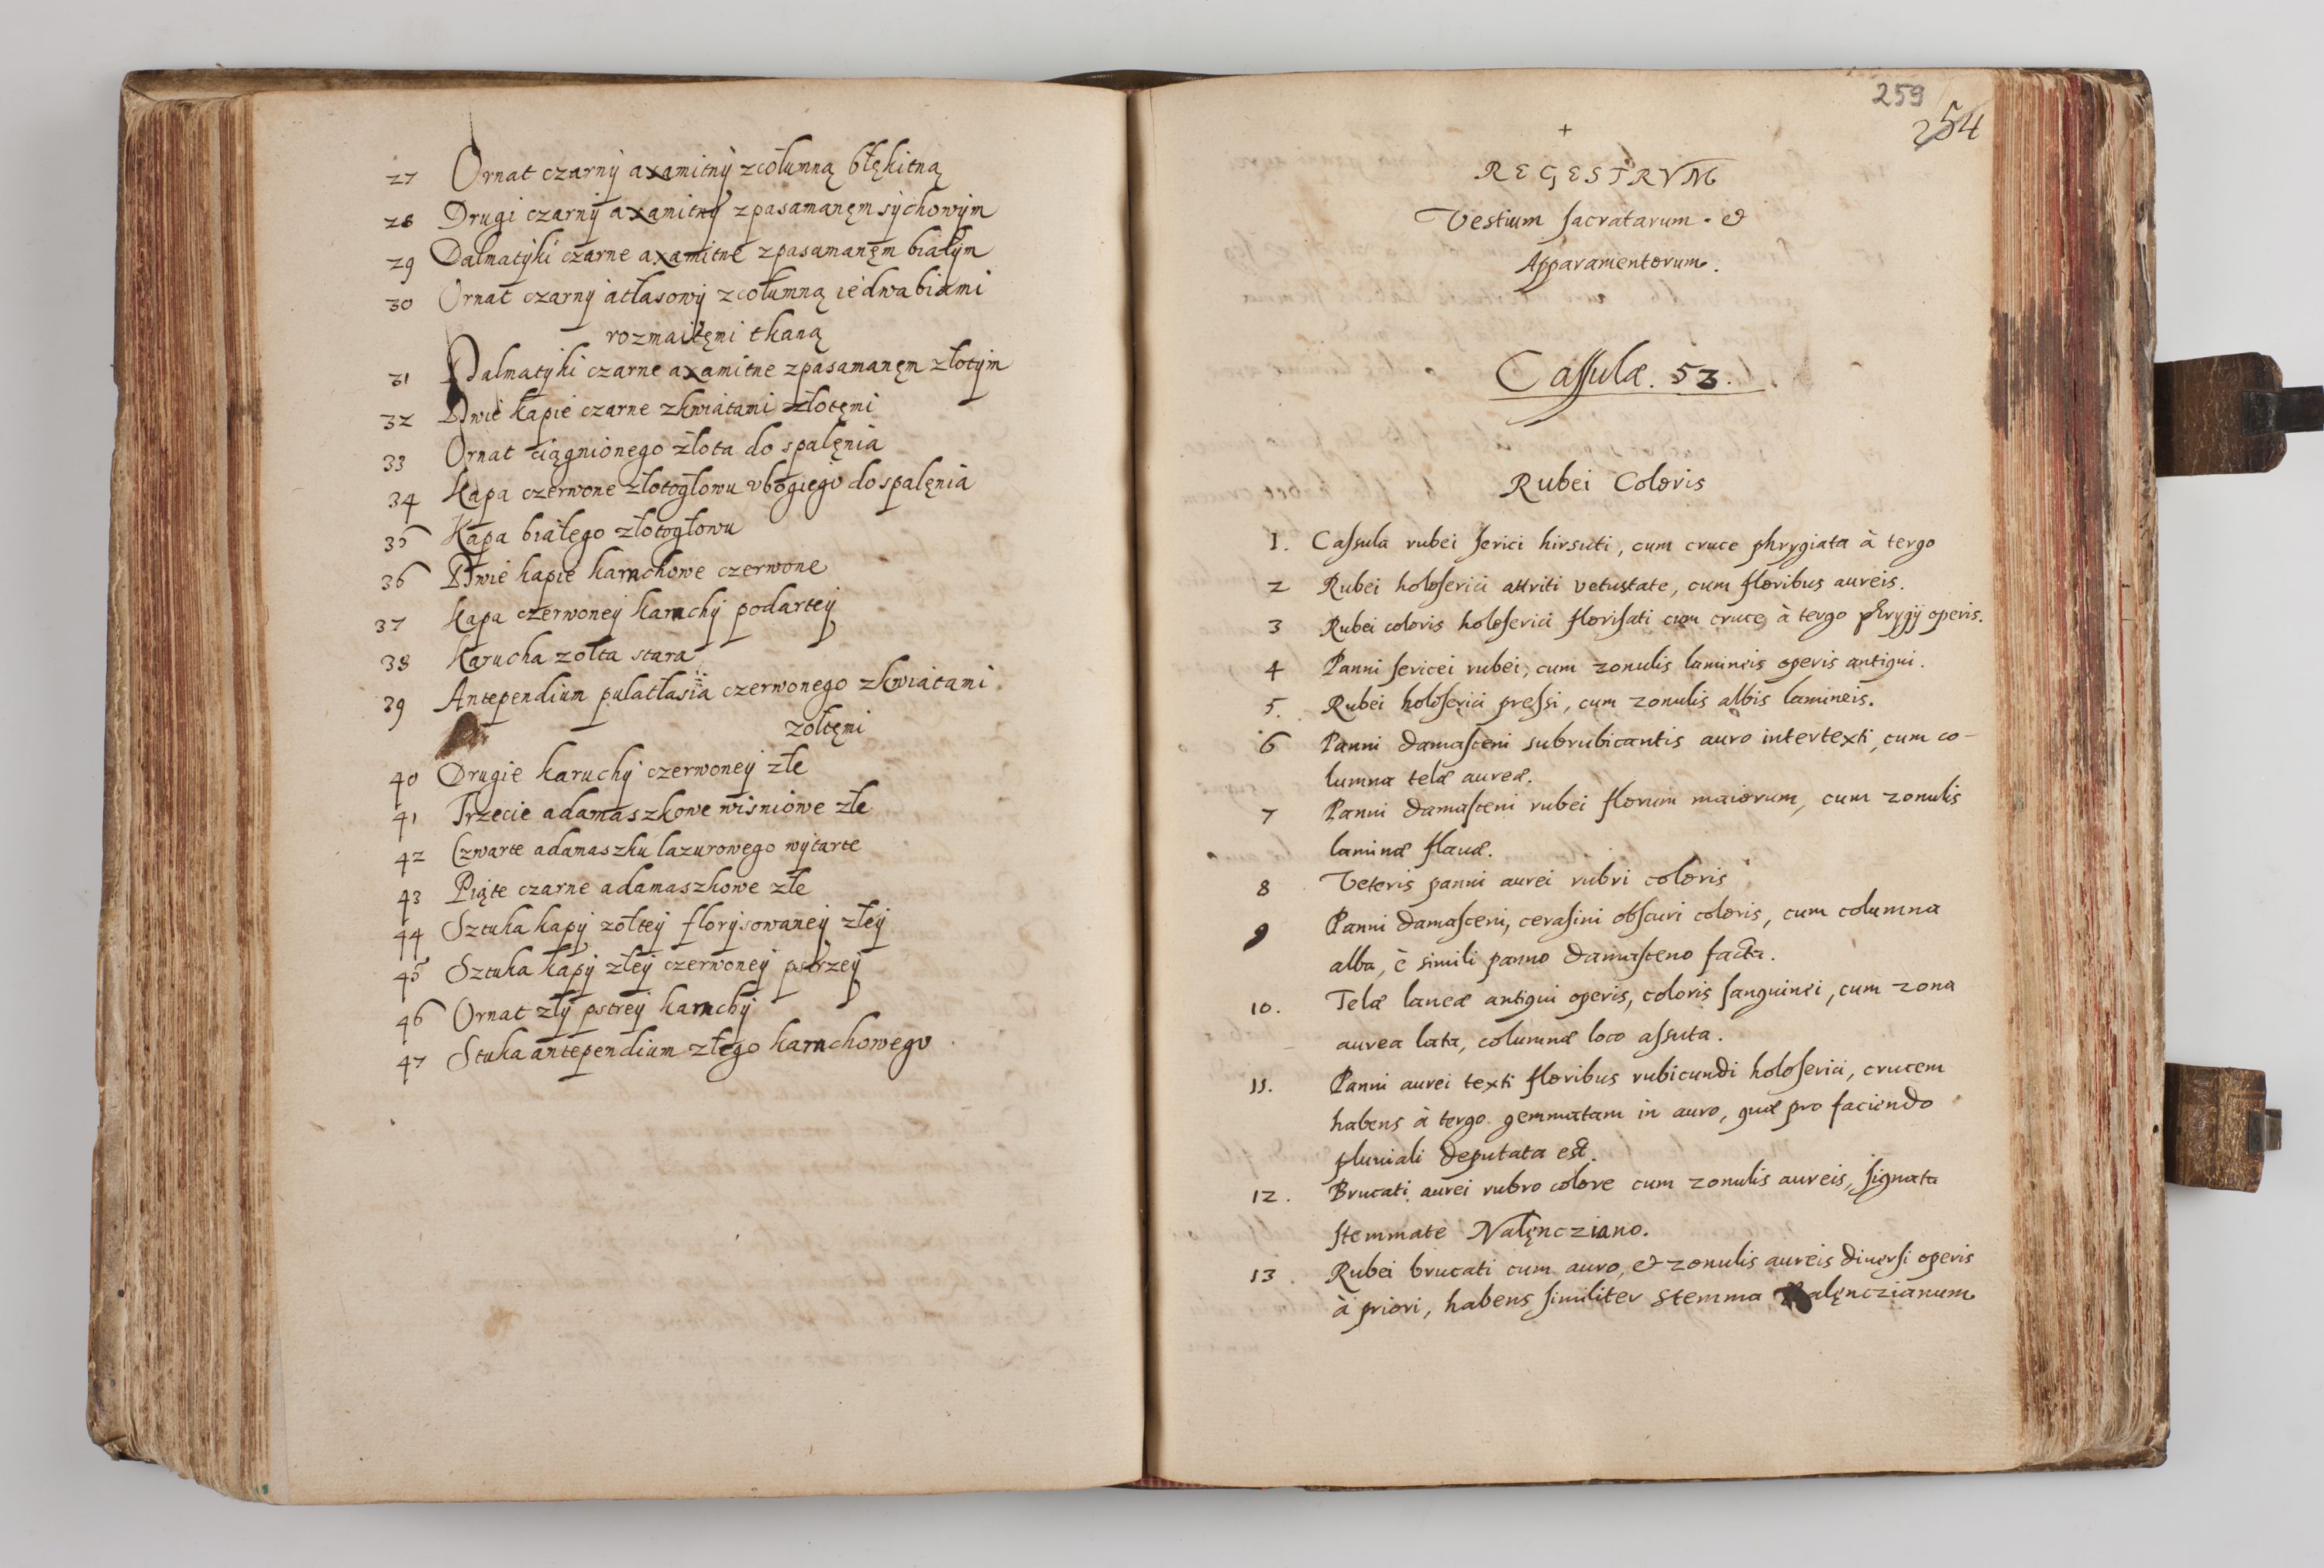 27 Ornat czarny axamitny zcołumną błękitną
28 Drugi czarny axamitny zpasamanęm sychowym
29 Dalmatyki czarne axamitne zpasamanęm białym
30 Ornat czarny atłasowy zcołumną iedwabiami
rozmaitęmi tkaną
31 Dalmatyki czarne axamitne zpasamanęm złotym
32 Dwie kapie czarne zkwiatami złotęmi
33 Ornat ciągnionego złota do spalęnia
34 Kapa czerwone złotogłowu vbogiego do spalęnia
35 Kapa białego złotogłowu
36 Dwie kapie karuchowe czerwone
37 Kapa czerwoney karuchy podartey
38 Karucha zołta stara
39 Antependium pulatłasia czerwonego zkwiatami
zołtęmi
40 Drugie karuchy czerwoney złe
41 Trzecie adamaszkowe wisniowe złe
42 Czwarte adamaszku lazurowego wytarte
43 Piąte czarne adamaszkowe złe
44 Sztuka kapy zołtey florysowaney złey
45 Sztuka kapy złey czerwoney pstrzey
46 Ornat zły pstrey karuchy
47 Stuka antependium złego karuchowego
259
254
+
REGESTRVM
Vestium sacratarum. &
Apparamentorum.
Cassulæ. 53.
Rubei Coloris
1. Cassula rubei serici hirsuti, cum cruce phrygiata à tergo
2 Rubei holoserici attriti vetustate, cum floribus aureis.
3 Rubei coloris holoserici florisati cum cruce à tergo phrygij operis.
4 Panni sericei rubei, cum zonulis lamineis operis antiqui.
5. Rubei holoserici pressi, cum zonulis albis lamineis.
6 Panni damasceni subrubicantis auro intertexti, cum co-
lumna telæ aureæ.
7 Panni damasceni rubei florum maiorum, cum zonulis
laminæ flauæ.
8 Veteris panni aurei rubri coloris
9 Panni damasceni, cerasini obscuri coloris, cum columna
alba, è simili panno damasceno facta.
10. Telæ laneæ antiqui operis, coloris sanguinei, cum zona
aurea lata, columnæ loco assuta.
11. Panni aurei texti floribus rubicundi holoserici, crucem
habens à tergo gemmatam in auro, quæ pro faciendo
pluuiali deputata est.
12. Brucati aurei rubro colore cum zonulis aureis, signata
stemmate Nałęncziano.
13. Rubei brucati cum auro, & zonulis aureis diuersi operis
à priori, habens similiter stemma Nalęnczianum